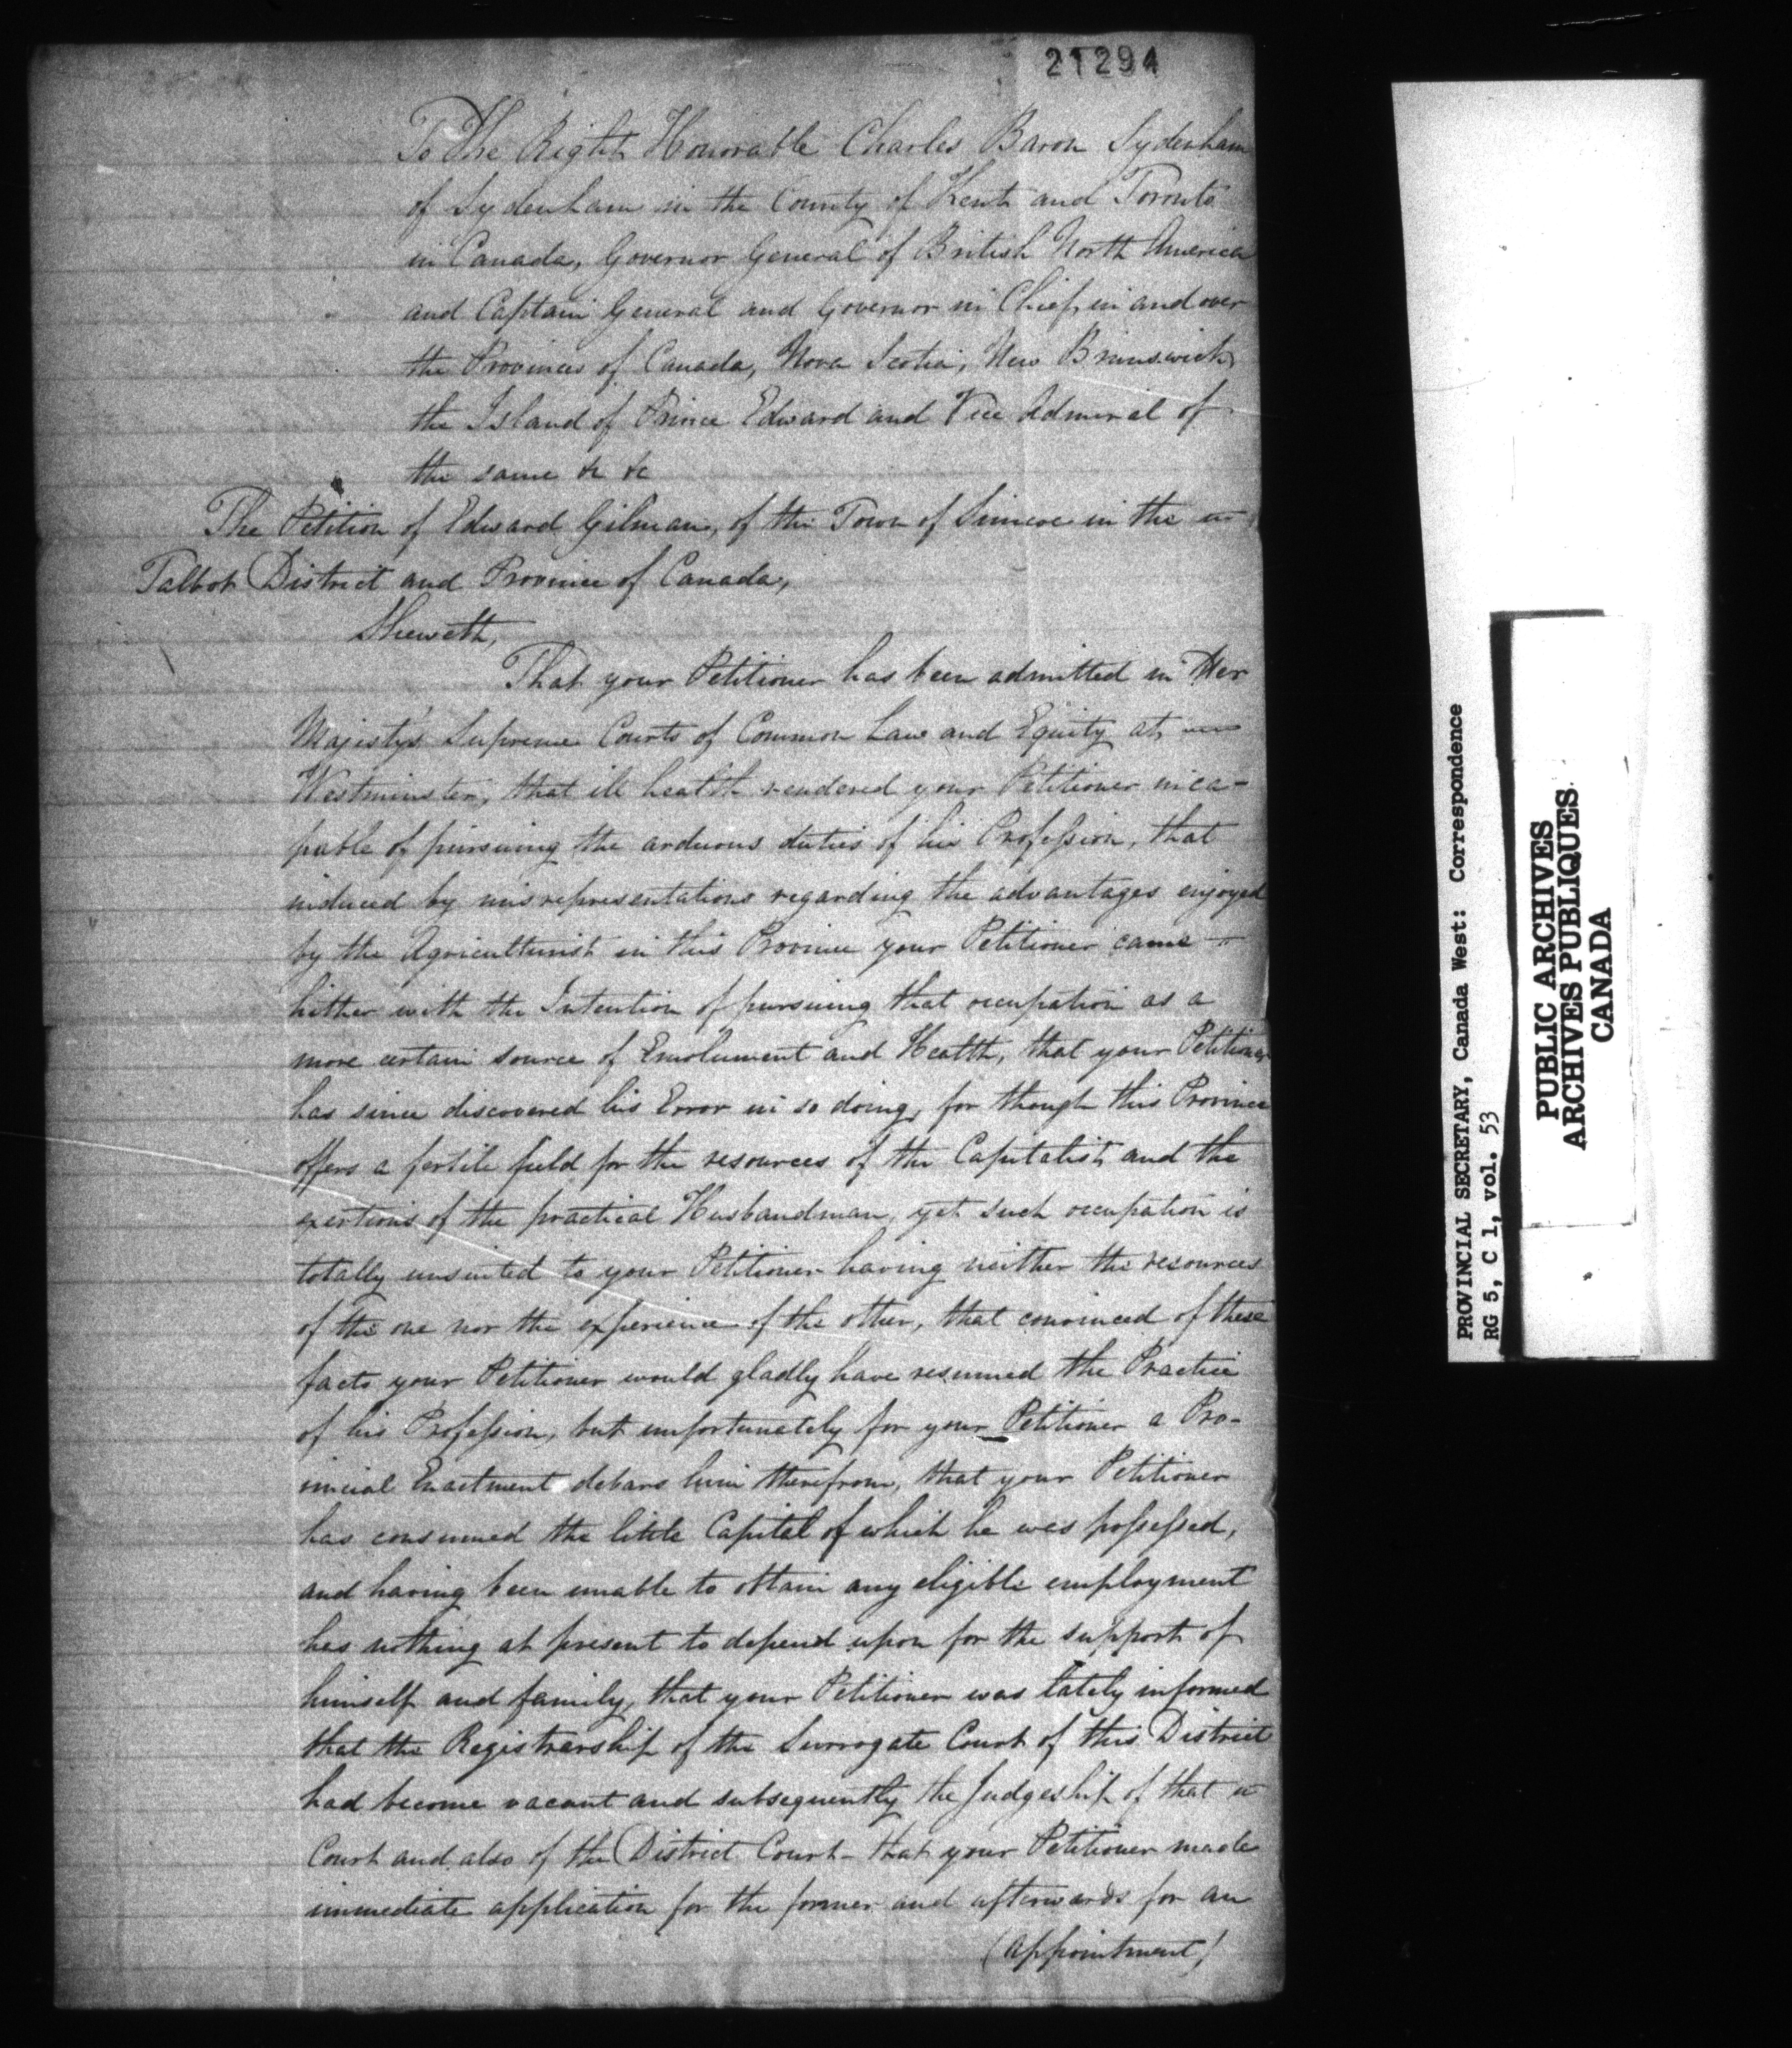 21294
To The Right Honorable Charles Baron Sydenham
of Sydenham in the County of Kent and Toronto
in Canada, Governor General of British North America
and Captain General and Governor in Chief, in and over
the Provinces of Canada, Nova Scotia, New Brunswick,
the Island of Prince Edward and Vice Admiral of
the same &c &c
The Petition of Edward Gilman, of the Town of Simcoe in the
Talbot District and Province of Canada,
Sheweth,
That your Petitioner has been admitted in Her
Majesty's Supreme Courts of Common Law and Equity at
Westminster, that ill health rendered your Petitioner inca-
pable of pursuing the arduous duties of his Profession, that
induced by misrepresentations regarding the advantages enjoyed
by the Agriculturist in this Province your Petitioner came
hither with the Intention of pursuing that occupation as a
more certain source of Emolument and Health, that your Petitioner
has since discovered his Error in so doing, for though this Province
offers a fertile field for the resources of the Capitalist and the
exertions of the practical Husbandman, yet such occupation is
totally unsuited to your Petitioner having neither the resources
of the one nor the experience of the other, that convinced of these
facts your Petitioner would gladly have resumed the Practice
of his Profession, but unfortunately for your Petitioner a Pro-
vincial Enactment debars him therefrom, that your Petitioner
has consumed the little Capital of which he was possessed,
and having been unable to obtain any eligible employment
has nothing at present to depend upon for the support of
himself and family, that your Petitioner was lately informed
that the Registrarship of the Surrogate Court of this District
had become vacant and subsequently the Judgeship of that
Court and also of the District Court - that your Petitioner made
immediate application for the former and afterwards for an
(appointment)
PROVINCIAL SECRETARY, Canada West: Correspondence
RG 5, C 1, vol. 53
PUBLIC ARCHIVES
ARCHIVES PUBLIQUES
CANADA